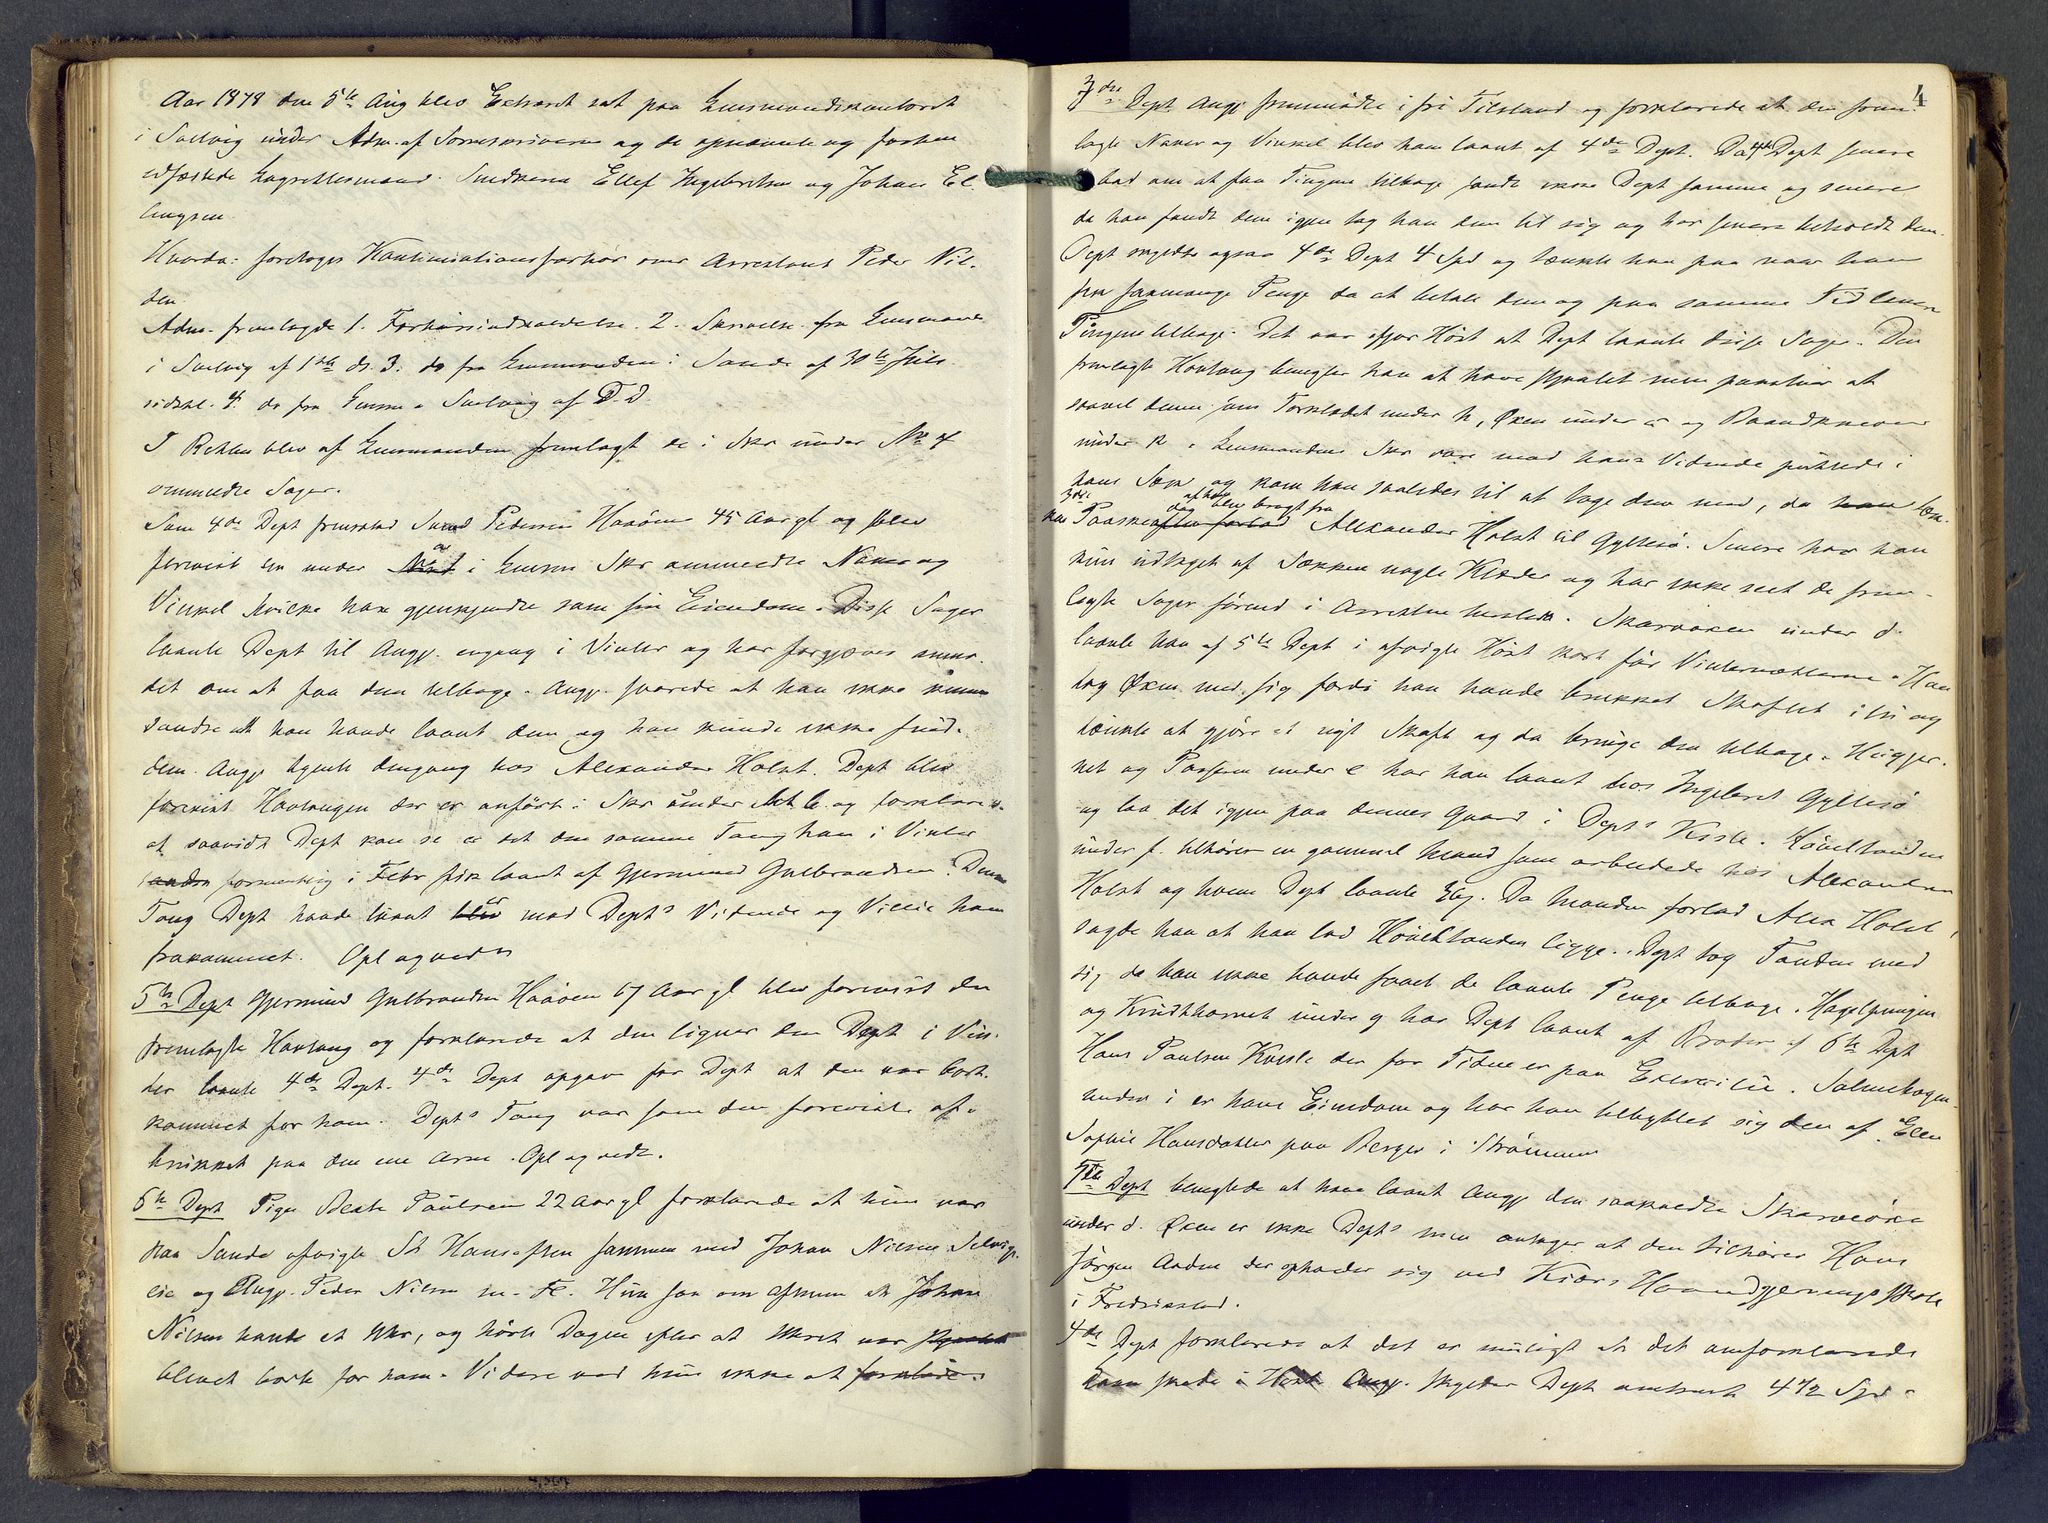 Aar 1878 den 5te Aug blev Extraret sat paa Lensmandskontoret
i Svelvig under Adm. af Sorenskriveren og de opnævnte og forhen
edfæstede Lagrettesmænd. Snedkerne Ellef Ingebretsen og Johan El-
lingsen
Hvorda: foretoges Kontinuationsforhør over Arrestant Peder Nil-
sen.
Adm. fremlagde 1. Forhørsindkaldelse. 2. Skrivelse fra Lensmand
i Svelvig af 1ste ds. 3. do fra Lensmanden i Sande af 30te Juli
sidstl. 4. do fra Lensm. i Svelvig af D.D.
I Retten blev af Lensmanden fremlagt de i Skr under No 4
ommeldte Sager.
Som 4de Dept fremstod Svend Pedersen Haaøen 45 Aar gl og blev
forevist den under a i Lensm Skr ommeldte Naver og
Vinkel hvilke han gjenkjendte som sin Eiendom. Disse Sager
laante Dept til Angj. engang i Vinter og har forgjæves anmo-
det om at faa dem tilbage. Angj. svarede at han ikke kunde
sandse at han havde laant dem og han kunde ikke finde
dem. Angj tjente dengang hos Alexander Holst. Dept blev
forevist Hovtangen der er anført i Skr under Litr b. og forklarede
at saavidt Dept kan se er det den samme Tang han i Vinter
formentlig i Febr fik laant af Gjermund Gulbrandsen. Denne
Tang Dept havde laant er mod Depts Vidende og Villie ham
frakommet. Opl og vedt
5te Dept Gjermund Gulbrandsen Haaøen 67 Aar gl blev forevist den
fremlagte Hovtang og forklarede at den ligner den Dept i Vin-
ter laante 4de Dept. 4de Dept opgav for Dept at den var bort-
kommet for ham. Depts Tang var som den foreviste af-
brukket paa den ene Arm. Opl og vedt.
6te Dept Pige Beate Paulsen 22 Aar gl forklarede at hun var
paa Sande afvigte St Hansaften sammen med Johan Nilsen Selvig-
eie og Angj. Peder Nilsen m. Fl. Hun saa om Aftenen at Johan
Nilsen havde et Uhr, og hørte Dagen efter at Uhret var
blevet borte for ham. Videre ved hun ikke at forklare.
4
3die Dept Angj. fremmødte i fri Tilstand og forklarede at den frem-
lagte Naver og Vinkel blev ham laant af 4de Dept. Da 4de Dept senere
bad om at faa Tingene tilbage fandt ikke Dept samme og senere
da han fandt dem igjen tog han dem til sig og har senere beholdt dem.
Dept skyldte ogsaa 4de Dept 4 Spd og tænkte han paa naar han
fik saamange Penge da at betale dem og paa samme Tid levere
Tingene tilbage. Det var ifjor Høst at Dept laante disse Sager. Den
fremlagte Hovtang benegter han at have stjaalet men paastaar at
saavel denne som Forklædet under h, Øxen under c og Baandkniven
under k i Lensmandens Skr vare mod hans Vidende puttede i
hans Sæk og kom han saaledes til at tage dem med, da han Sæk-
ken 3die Paaskedag af ham blev bragt fra Alexander Holst til Gyltesø. Senere har han
kun udtaget af Sækken nogle Klæder og har ikke seet de frem-
lagte Sager førend i Arresten . Skarvøxen under d.
laante han af 5te Dept i afvigte Høst kort før Vinternætterne. Han
tog Øxen med sig fordi han havde brukket Skaftet itu og
tænkte at gjøre et nyt Skaft og da bringe den tilbage. Heigjer-
net og Passeren under e har han laant hos Ingebret Gyltesø
og laa det igjen paa dennes Gaard i Depts Kiste. Høveltanden
under f. tilhører en gammel Mand som arbeidede hos Alexander
Holst og hvem Dept laante Penge. Da Manden forlod Alex Holst,
sagde han at han lod Høveltanden ligge. Dept tog Tanden med
sig da han ikke havde faaet de laante Penge tilbage. Hagelpungen
og Krudthornet under g har Dept laant af Broder af 6te Dept
Hans Paulsen Kvesle der for Tiden er paa Exercitie. Salmebogen
under i er hans Eiendom og har han tilbyttet sig den af Elen
Sophie Hansdatter paa Berger i Strømmen
5te Dept benegtede at have laant Angj den saakaldte Skarvøxe
under d. Øxen er ikke Depts men antager at den tilhører Hans
Jørgen Andrea der opholder sig ved Kiærs Haandgjerningsskole
i Fredrikstad.
4de Dept forklarede at det er muligt at det omforklarede
Laan skede i Høst. Angj. skylder Dept omtrent 4 1/2 Spd.